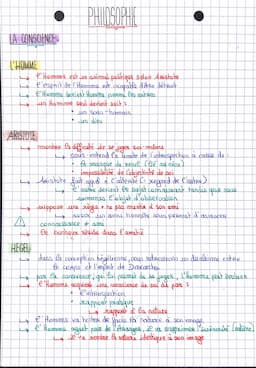 PHILOSOPHIE
LA CONSCIENCE
L'HOMME
↳ l'Homme est un animal politique selon Aristote
↳ l'esprit de l'Homme est incapable d'être détruit
↳ l'Homme devient Homme parmi les autres
↳ un Homme seul devient soit :
• un sous-homme
• un dieu
ARISTOTE
↳ montre la difficulté de se juger soi-même
↳ sous-entend la limite de l'introspection à cause de :
• le manque de recul
• impossibilité de l'objectivité de soi
↳ Aristote fait appel à l'altérité (regard de l'autre)
↳ l'autre devient le sujet connaissant tandis que nous
sommes l'objet d'observation
↳ suppose une règle : ne pas mentir à son ami
↳ avoir un ami honnête nous permet d'avoir
connaissance
↳ Le bonheur réside dans l'amitié
HEGEL
↳ dans la conception hégélienne, nous retrouvons le dualisme entre
le corps et l'esprit de Descartes
↳ par la conscience, qui lui permet de se juger, l'Homme peut évoluer
↳ l'Homme acquiert une conscience de soi de par :
• l'introspection
• rapport pratique
↳ rapport à la nature
↳ l'Homme va tenter de faire la nature à son image
↳ l'Homme agit
↳ il va rendre la nature identique à son image